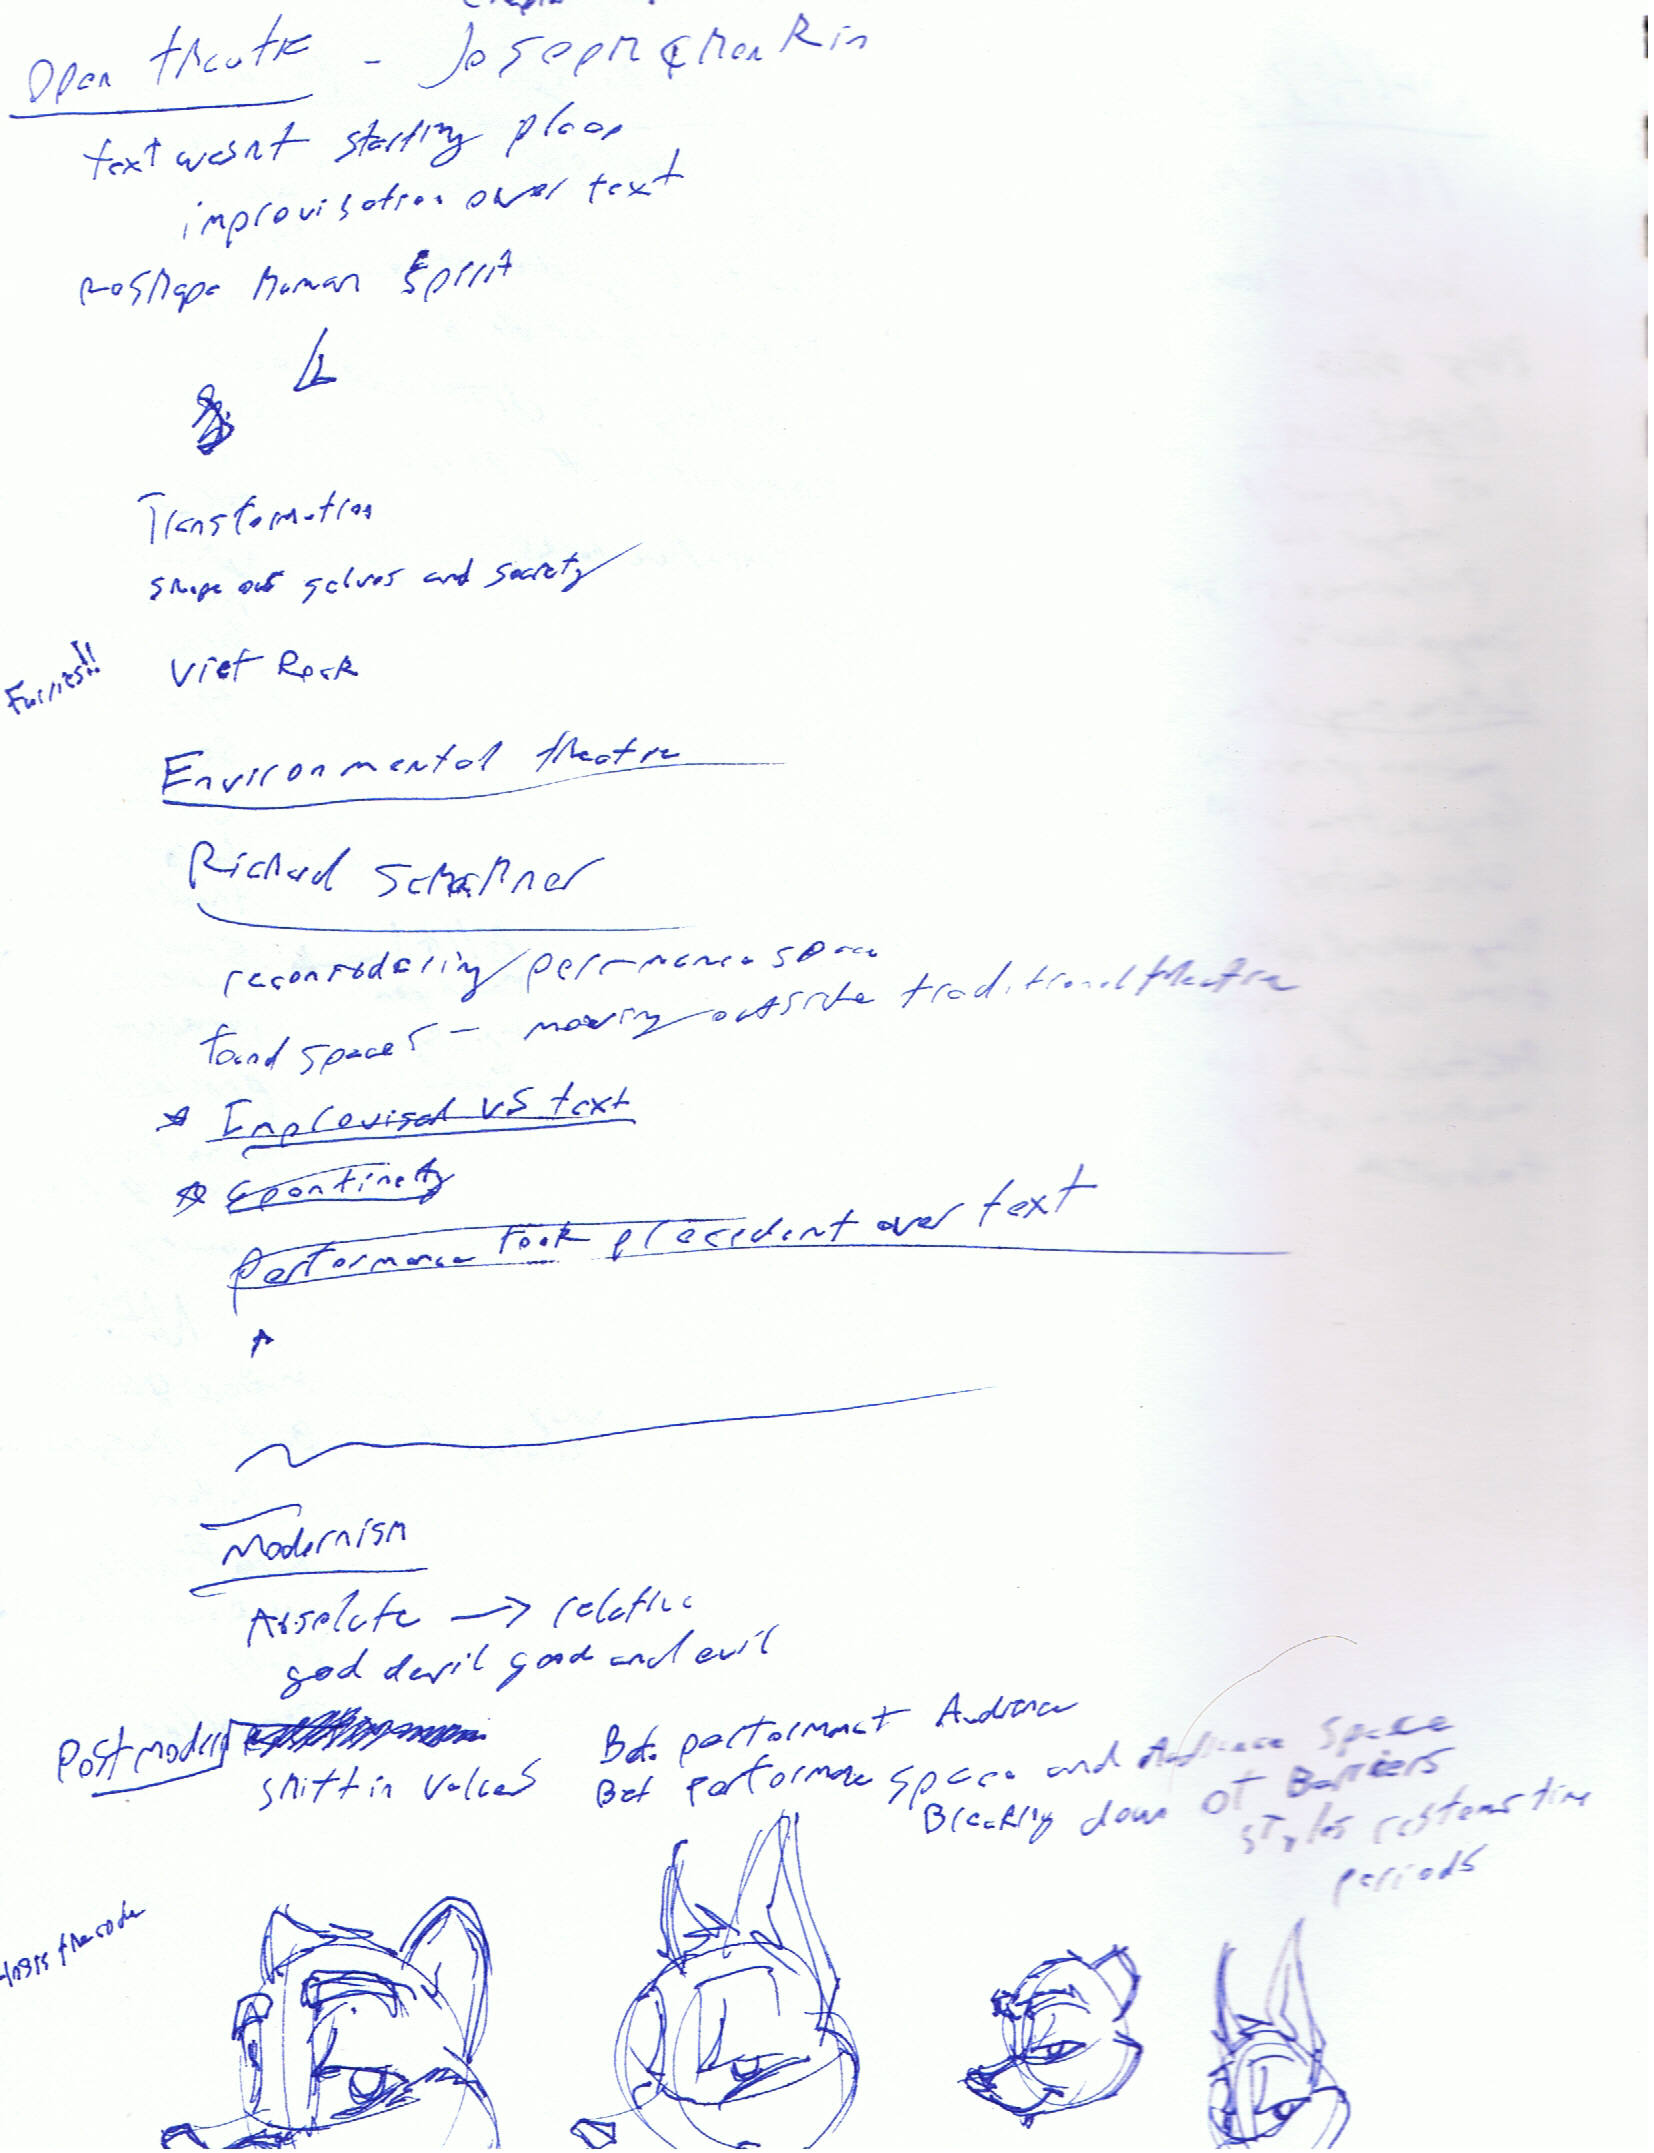 Open theatre - Joseph Chenkin
text wasnt starting place
improvisation over text
reshape human spirit
Transformation
shape our selves and society
Furries!!
Viet Rock
Environmental theatre
Richard Schechner
performance space
found spaces - moving outside traditional theatre
* Improvised vs text
* Spontinety
Performance took precedent over text
Modernism
Absolute → relative
god devil good and evil
Postmodern
shift in values
Bet. performanct Audience
Bet performance space and Audience Space
Breaking down of Barriers
styles time
periods